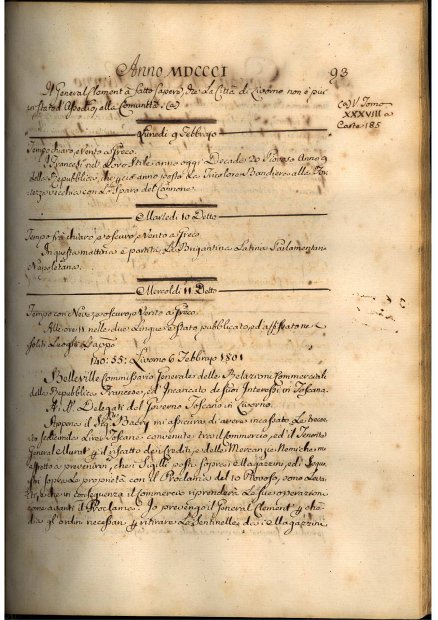 Anno MDCCCI
93
Il General Clement à fatto sapere, che La Città di Livorno non è piu
in stato d'Assedio, alla Comunità. (a)
(a) V. Tomo
XXXVIII a
Carte 185
Lunedì 9 Febbrajo
Tempo chiaro, e Vento a Greco.
I Francesi nel Loro Stile anno oggi Decade 20 Piovoso Anno 9
della Repubblica, che già anno posta La Tricolore Bandiera alla For-
tezza vecchia con Lo Sparo del Cannone.
Martedì 10 Detto
Tempo fra chiaro, e oscuro, e Vento a Greco
In questa mattina è partita La Brigantina Latina Parlamentaria
Napoletana.
Mercoldì 11 Detto
Tempo con Neve, e oscuro, e Vento a Greco.
Alle ore 11 nelle due Lingue è stato pubblicato, ed affisso a
soliti Luoghi L'appo
140: 55: Livorno 6 Febbrajo 1801
Belleville Commissario Generale delle Relazioni Commerciali
della Repubblica Francese, ed Incaricato de suoi Interessi in Toscana.
A i Delegati del Governo Toscano in Livorno.
Appena il Sig.re Baëry mi assicura di avere incassato Le trecen-
to sedicimila Lire Toscane convenute tra il Commercio, ed il Tenente
General Murat p il risatto dei Crediti, e delle Mercanzie Nemiche, mi
affretto a prevenirvi, che i Sigilli posti sopra i Magazzini, ed i Seque-
stri sopra Le proprietà con il Proclama del 10 Piovoso, sono Leva-
ti, e che in conseguenza il Commercio riprenderà Le sue operazioni
come avanti il Proclama. Io prevengo il General Clement p che
dia gli ordini necessari p ritirare Le Sentinelle da i Magazzini